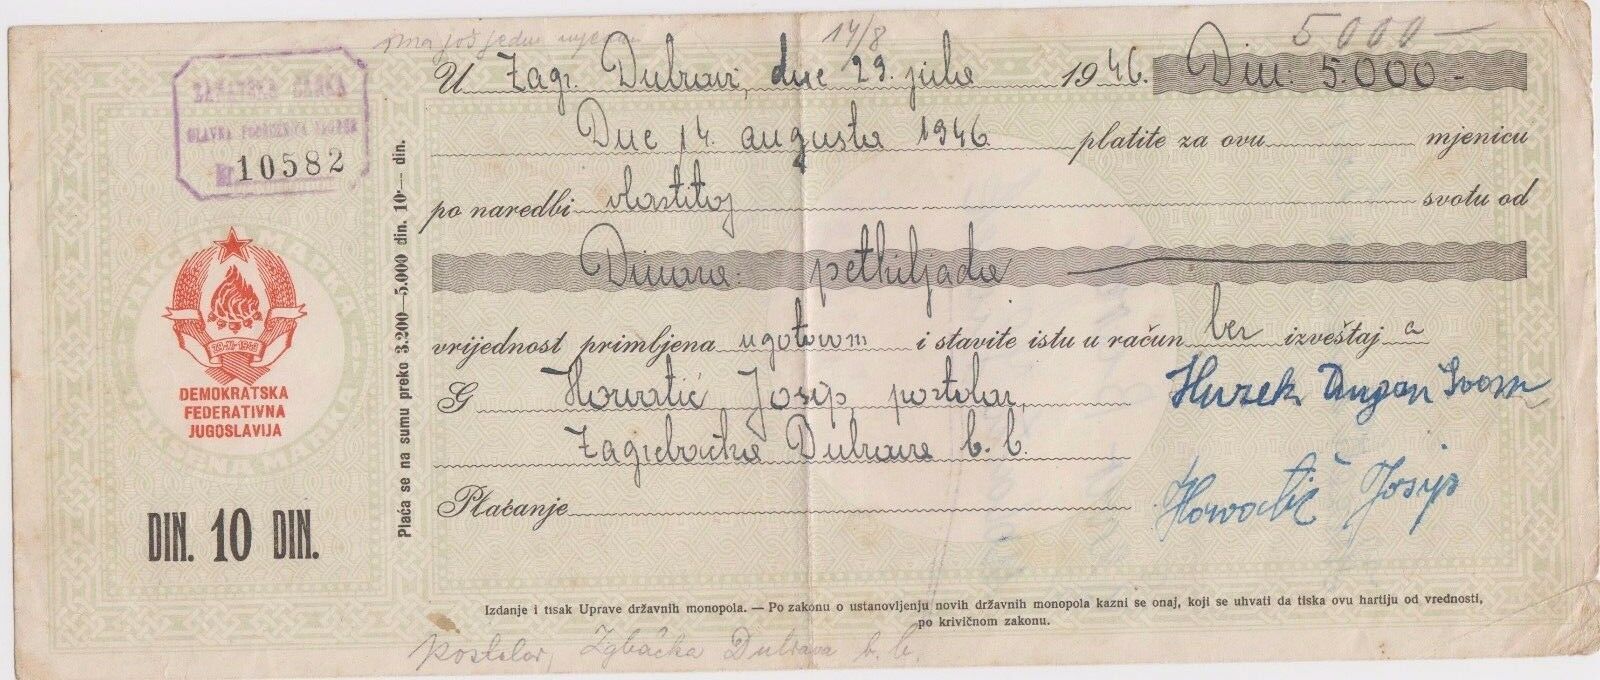 ima još jednu mjenicu 14/8 5000 —
U Zagr. Dubravi, dne 29. jula 1946. Din: 5.000.-
Dne 14. augusta 1946 platite za ovu mjenicu
po naredbi vlastitoj svotu od
Dinara: pethiljada
vrijednost primljena u gotovom i stavite istu u račun bez izveštaj a
G Horvatić Josip, postolar,
Zagrebačka Dubrava b. b.
Plaćanje
Horvatić Josip
Izdanje i tisak Uprave državnih monopola. — Po zakonu o ustanovljenju novih državnih monopola kazni se onaj, koji se uhvati da tiska ovu hartiju od vrednosti,
po krivičnom zakonu.
postolar, Zgbačka Dubrava b. b.
GLAVNA PODRUŽNICA ZAGREB
Nr 10582
29-XI-1943
DEMOKRATSKA
FEDERATIVNA
JUGOSLAVIJA
DIN. 10 DIN.
Plaća se na sumu preko 3.200—5.000 din. 10·— din.